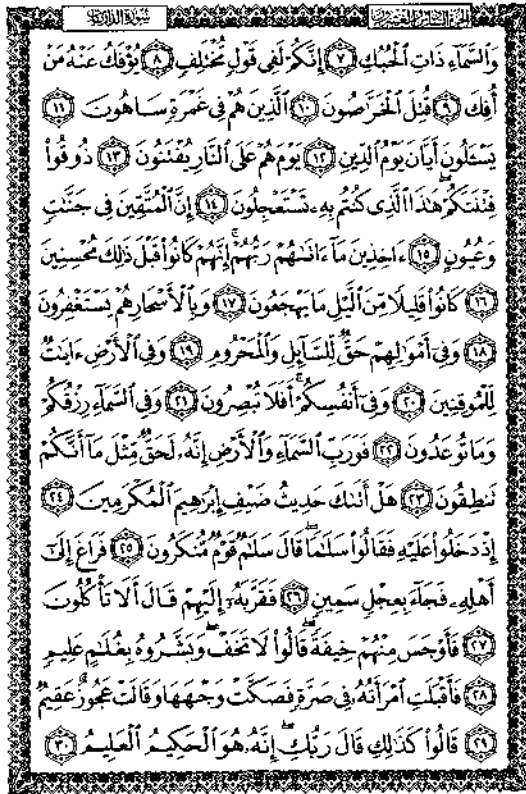 سُورَةُ الذَّارِيَاتِ الجزء السادس والعشرون
وَالسَّمَآءِ ذَاتِ الْحُبُكِ ۝٧ إِنَّكُمْ لَفِى قَوْلٍ مُّخْتَلِفٍ ۝٨ يُؤْفَكُ عَنْهُ مَنْ
أُفِكَ ۝٩ قُتِلَ الْخَرَّٰصُونَ ۝١٠ الَّذِينَ هُمْ فِى غَمْرَةٍ سَاهُونَ ۝١١
يَسْـَٔلُونَ أَيَّانَ يَوْمُ الدِّينِ ۝١٢ يَوْمَ هُمْ عَلَى النَّارِ يُفْتَنُونَ ۝١٣ ذُوقُوا۟
فِتْنَتَكُمْ هَٰذَا الَّذِى كُنتُم بِهِۦ تَسْتَعْجِلُونَ ۝١٤ إِنَّ الْمُتَّقِينَ فِى جَنَّٰتٍ
وَعُيُونٍ ۝١٥ ءَاخِذِينَ مَآ ءَاتَىٰهُمْ رَبُّهُمْ ۚ إِنَّهُمْ كَانُوا۟ قَبْلَ ذَٰلِكَ مُحْسِنِينَ
۝١٦ كَانُوا۟ قَلِيلًا مِّنَ الَّيْلِ مَا يَهْجَعُونَ ۝١٧ وَبِالْأَسْحَارِ هُمْ يَسْتَغْفِرُونَ
۝١٨ وَفِىٓ أَمْوَٰلِهِمْ حَقٌّ لِّلسَّآئِلِ وَالْمَحْرُومِ ۝١٩ وَفِى الْأَرْضِ ءَايَٰتٌ
لِّلْمُوقِنِينَ ۝٢٠ وَفِىٓ أَنفُسِكُمْ ۚ أَفَلَا تُبْصِرُونَ ۝٢١ وَفِى السَّمَآءِ رِزْقُكُمْ
وَمَا تُوعَدُونَ ۝٢٢ فَوَرَبِّ السَّمَآءِ وَالْأَرْضِ إِنَّهُۥ لَحَقٌّ مِّثْلَ مَآ أَنَّكُمْ
تَنطِقُونَ ۝٢٣ هَلْ أَتَىٰكَ حَدِيثُ ضَيْفِ إِبْرَٰهِيمَ الْمُكْرَمِينَ ۝٢٤
إِذْ دَخَلُوا۟ عَلَيْهِ فَقَالُوا۟ سَلَٰمًا ۖ قَالَ سَلَٰمٌ قَوْمٌ مُّنكَرُونَ ۝٢٥ فَرَاغَ إِلَىٰٓ
أَهْلِهِۦ فَجَآءَ بِعِجْلٍ سَمِينٍ ۝٢٦ فَقَرَّبَهُۥٓ إِلَيْهِمْ قَالَ أَلَا تَأْكُلُونَ
۝٢٧ فَأَوْجَسَ مِنْهُمْ خِيفَةً ۖ قَالُوا۟ لَا تَخَفْ ۖ وَبَشَّرُوهُ بِغُلَٰمٍ عَلِيمٍ
۝٢٨ فَأَقْبَلَتِ امْرَأَتُهُۥ فِى صَرَّةٍ فَصَكَّتْ وَجْهَهَا وَقَالَتْ عَجُوزٌ عَقِيمٌ
۝٢٩ قَالُوا۟ كَذَٰلِكِ قَالَ رَبُّكِ ۖ إِنَّهُۥ هُوَ الْحَكِيمُ الْعَلِيمُ ۝٣٠